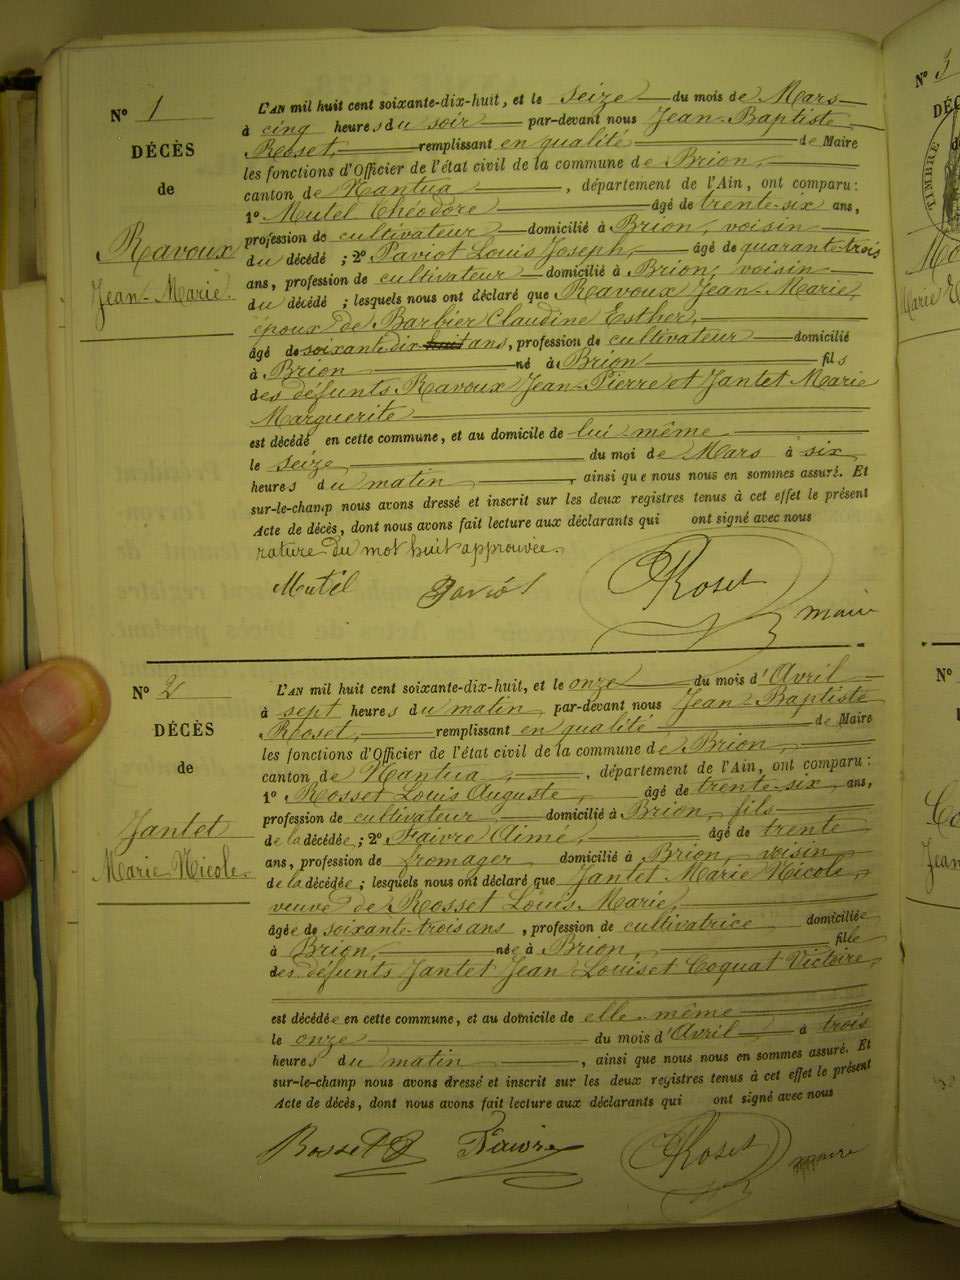 N° 1
DÉCÈS
de
Ravoux
Jean-Marie.
L'AN mil huit cent soixante-dix-huit, et le seize du mois de Mars
à cinq heures du soir par-devant nous Jean-Baptiste
Roset, remplissant en qualité de Maire
les fonctions d'Officier de l'état civil de la commune de Brion,
canton de Nantua, département de l'Ain, ont comparu :
1° Mutel Théodore âgé de trente-six ans,
profession de cultivateur domicilié à Brion, voisin
du décédé ; 2° Paviot Louis Joseph, âgé de quarante-trois
ans, profession de cultivateur domicilié à Brion, voisin
du décédé ; lesquels nous ont déclaré que Ravoux Jean-Marie,
époux de Barbier Claudine Esther,
âgé de soixante dix huit ans, profession de cultivateur domicilié
à Brion né à Brion fils
des défunts Ravoux Jean-Pierre et Jantet Marie
Marguerite
est décédé en cette commune, et au domicile de lui-même
le seize, du moi de Mars à six
heures du matin, ainsi que nous nous en sommes assuré. Et
sur-le-champ nous avons dressé et inscrit sur les deux registres tenus à cet effet le présent
Acte de décès, dont nous avons fait lecture aux déclarants qui ont signé avec nous
rature du mot huit approuvée.
Mutel Paviot Roset maire
N° 2
DÉCÈS
de
Jantet
Marie Nicole.
L'AN mil huit cent soixante-dix-huit, et le onze du mois d'Avril
à sept heures du matin par-devant nous Jean-Baptiste
Roset, remplissant en qualité de Maire
les fonctions d'Officier de l'état civil de la commune de Brion,
canton de Nantua, département de l'Ain, ont comparu :
1° Rosset Louis Auguste, âgé de trente-six ans,
profession de cultivateur, domicilié à Brion, fils
de la décédée ; 2° Faivre Aimé, âgé de trente
ans, profession de fromager, domicilié à Brion, voisin
de la décédée ; lesquels nous ont déclaré que Jantet Marie Nicole,
veuve de Rosset Louis Marie,
âgée de soixante-trois ans, profession de cultivatrice domiciliée
à Brion, née à Brion, fille
des défunts Jantet Jean Louis et Coquat Victoire,
est décédée en cette commune, et au domicile de elle-même
le onze du mois d'Avril à trois
heures du matin, ainsi que nous nous en sommes assuré. Et
sur-le-champ nous avons dressé et inscrit sur les deux registres tenus à cet effet le présent
Acte de décès, dont nous avons fait lecture aux déclarants qui ont signé avec nous
Rosset Faivre Roset maire
N° 3
TIMBRE